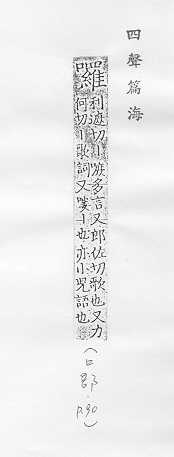 四聲篇海
囉
利遮切丨多言又郎佐切歌也又力
何切丨歌詞又嘍丨也亦小兒語也
(口部．P.90)